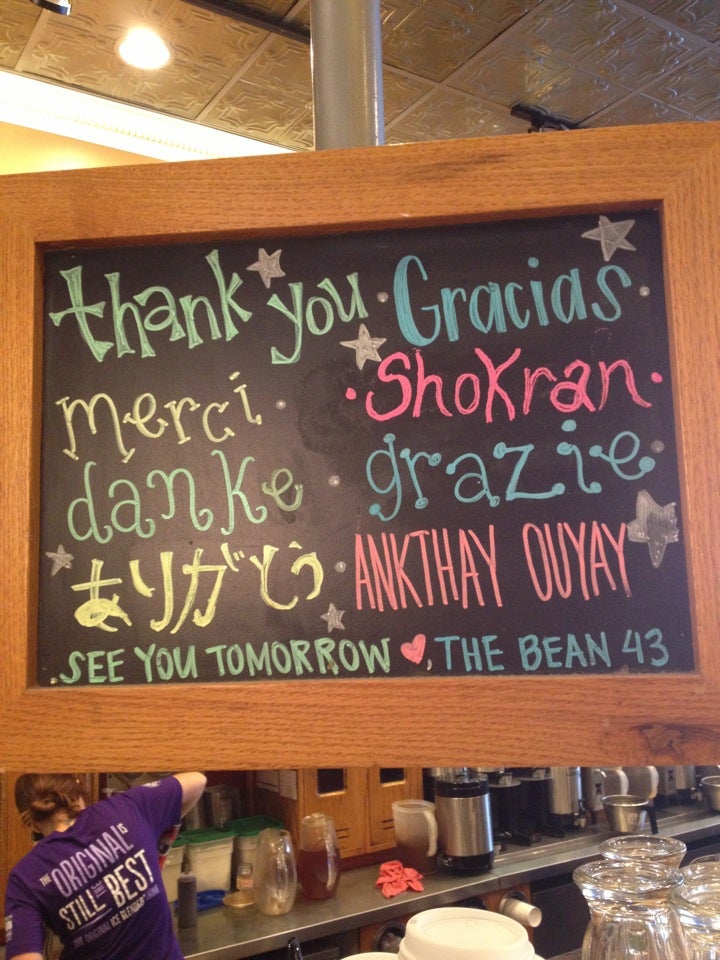 thank you · Gracias
merci · Shokran ·
danke · grazie
ありがとう · ANKTHAY OUYAY
SEE YOU TOMORROW ♥, THE BEAN 43
THE ORIGINAL IS
STILL THE BEST
THE ORIGINAL ICE BLENDED